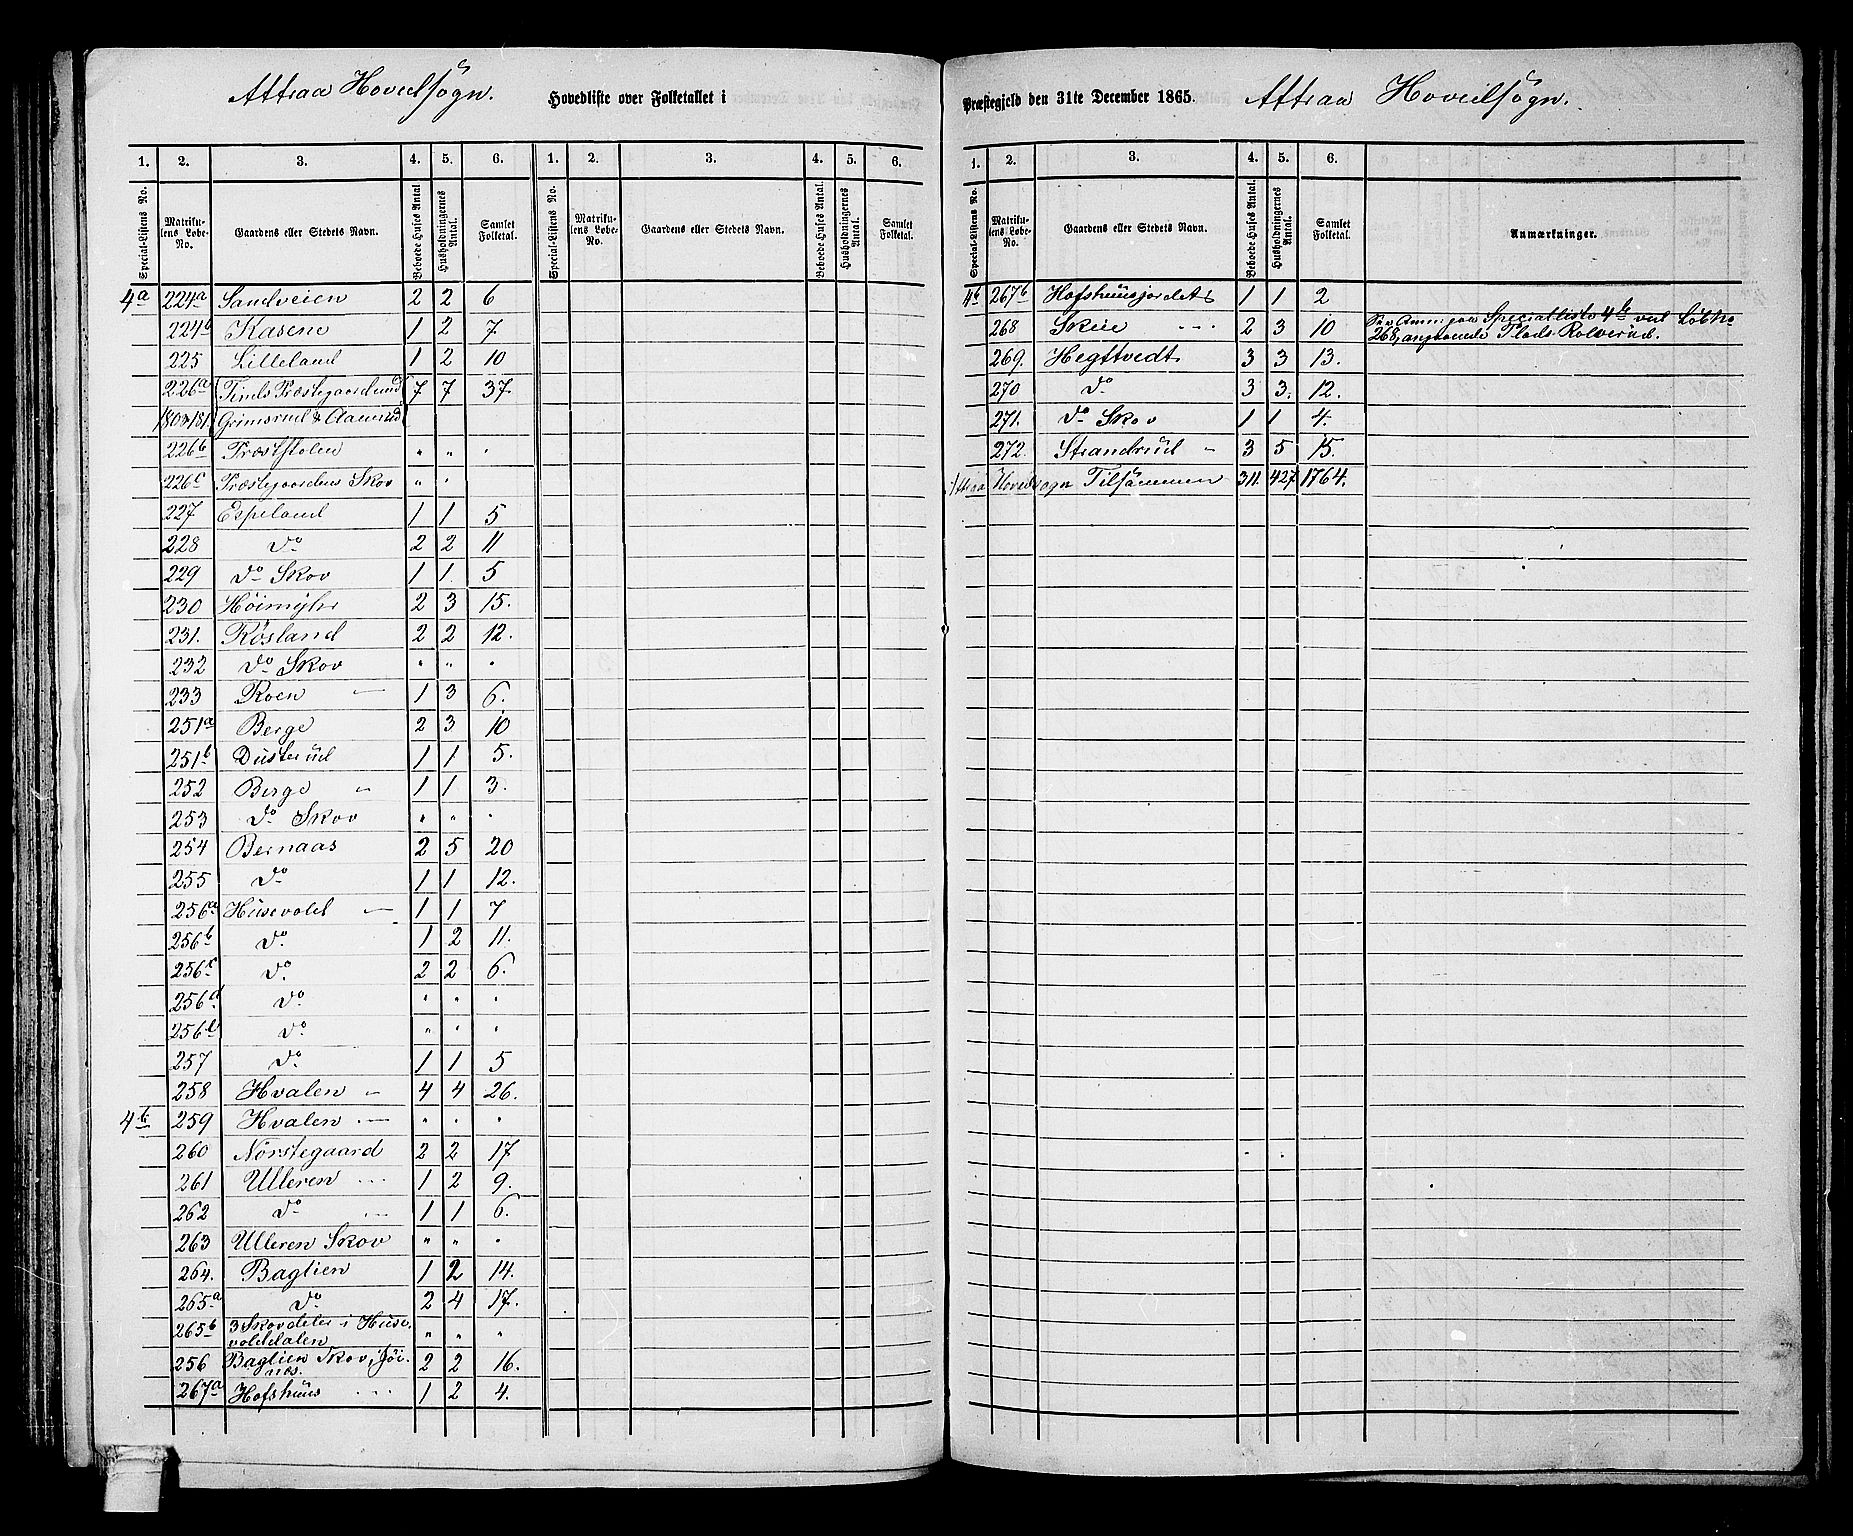 Attraa Hovedsogn.
Hovedliste over Folketallet i
1. 2. 3. 4. 5. 6. 1. 2. 3. 4. 5. 6.
Special-Listens No. Matrikulens Løbe-No. Gaardens eller Stedets Navn. Beboede Huses Antal Husholdningernes Antal. Samlet Folketal. Special-Listens No. Matrikulens Løbe-No. Gaardens eller Stedets Navn. Beboede Huses Antal. Husholdningernes Antal. Samlet Folketal.
4a 224a Sandveien 2 2 6
224b Kasene 1 2 7
225 Lilleland 1 2 10
226a Tinds Præstegaard und 7 7 37
180&181 Grimsrud &
226b Præststolen " " "
226c Præstegaardens Skov " "
227 Espeland 1 1 5
228 Do 2 2 11
229 Do Skov 1 1 5
230 Höimyhr 2 3 15.
231. Røsland 2 2 12.
232 Do Skov " " "
233 Roen 1 3 6.
251a Berge 2 3 10
251b Dusterud 1 1 5.
252 Berge " 1 1 3.
253 Do Skov " " "
254 Bernaas 2 5 20
255 Do 1 1 12.
256a Husevold 1 1 7
256b Do 1 2 11.
256c Do 2 2 6.
256d Do " " "
256e Do " " "
257 Do 1 1 5
258 Hvalen " 4 4 26.
4b 259 Hvalen " " "
260 Norstegaard 2 2 17
261 Ulleren 1 2 9.
262 Do 1 1 6.
263 Ulleren Skov " " "
264. Baglien 1 2 14.
265a Do 2 4 17.
265b 3 Skovdeler i Huse-
voldalen " " "
256 Baglien Skov, 2 2 16.
267a Hofshuus 1 2 4.
Præstegjeld den 31te December 1865. Attraa Hovedsogn.
1. 2. 3. 4. 5. 6.
Special-Listens No. Matrikulens Løbe-No. Gaardens eller Stedets Navn. Beboede Huses Antal. Husholdningernes Antal. Samlet Folketal. Anmærkninger.
4b 267b Hofshuusjordet 1 1 2
268 Skeie 2 3 10 Specialliste 4b ved Løbno
268, angaaende Plads Rolverud.
269. Hegtvedt 3 3 13.
270 Do 3 3. 12.
271. Do Skov 1 1 4.
272. Strandrud " 3 5 15.
Attraa Hovedsogn Tilsammen 311. 427 1764.